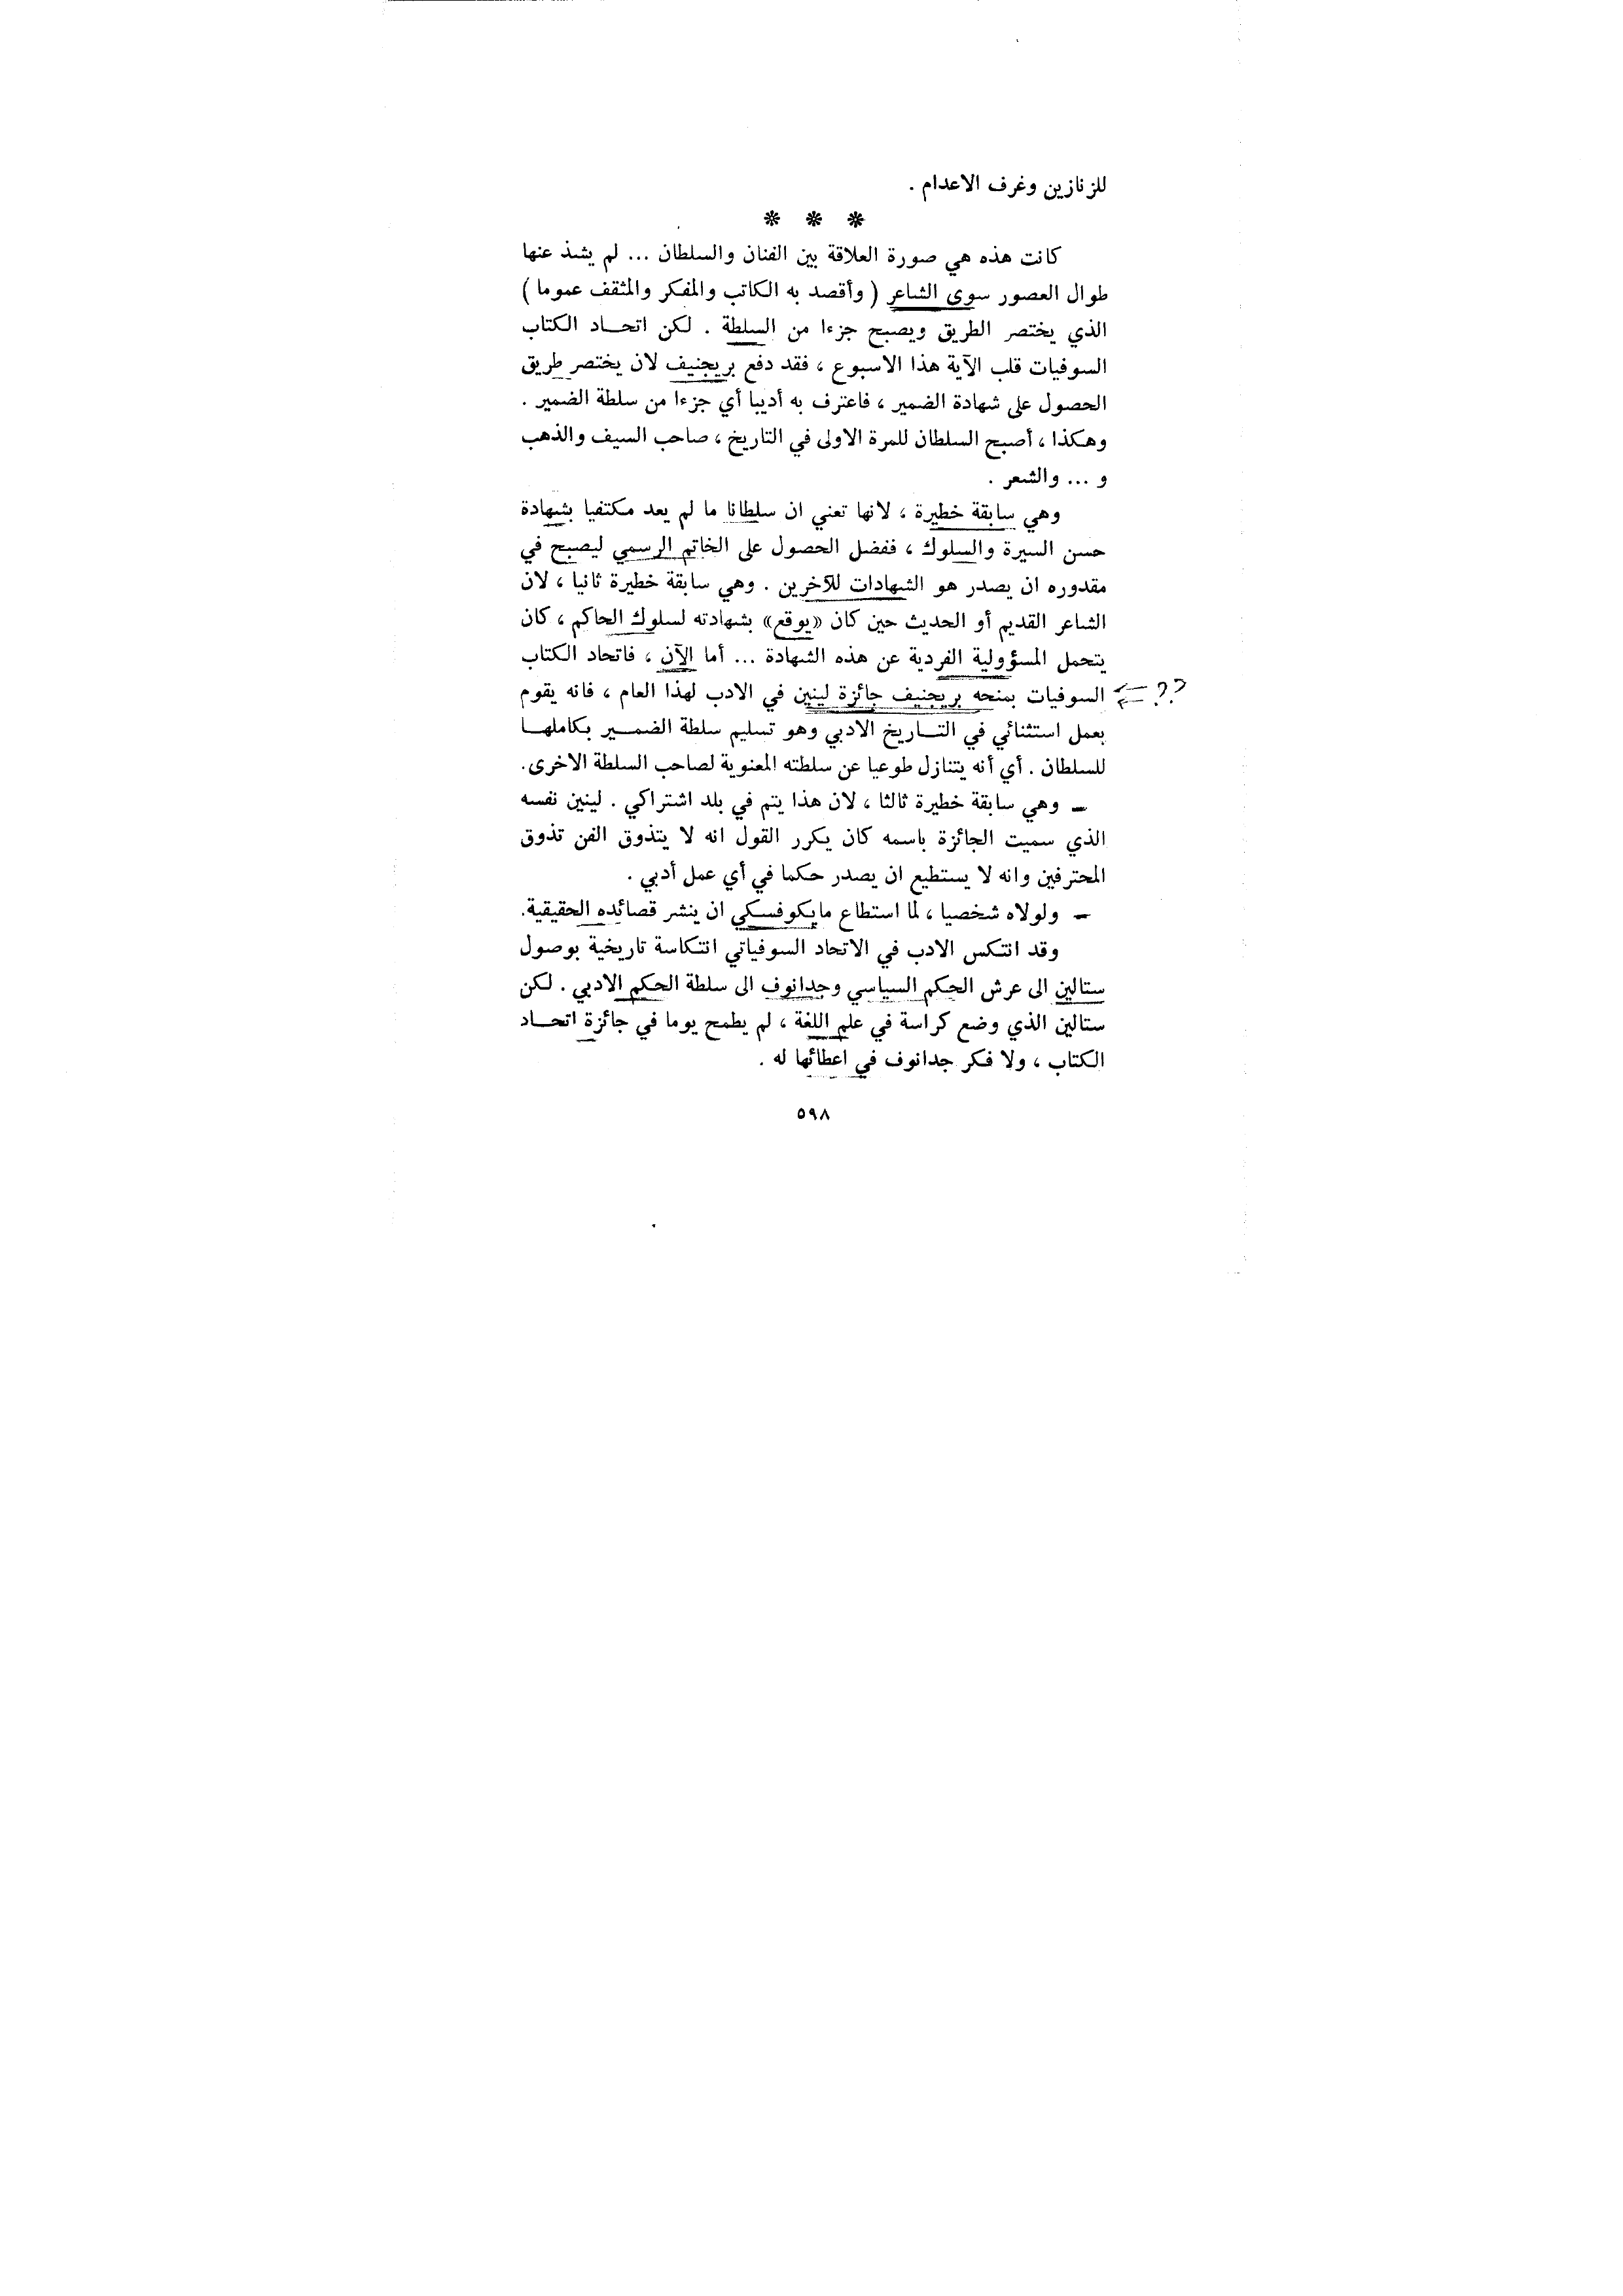 للزنازين وغرف الاعدام .
* * *
كانت هذه هي صورة العلاقة بين الفنان والسلطان ... لم يشذ عنها
طوال العصور سوى الشاعر ( وأقصد به الكاتب والمفكر والمثقف عموما )
الذي يختصر الطريق ويصبح جزءا من السلطة . لكن اتحاد الكتاب
السوفيات قلب الآية هذا الاسبوع ، فقد دفع بريجنيف لان يختصر طريق
الحصول على شهادة الضمير ، فاعترف به أديبا أي جزءا من سلطة الضمير .
وهكذا ، أصبح السلطان للمرة الاولى في التاريخ ، صاحب السيف والذهب
و ... والشعر .
وهي سابقة خطيرة ، لانها تعني ان سلطانا ما لم يعد مكتفيا بشهادة
حسن السيرة والسلوك ، ففضل الحصول على الخاتم الرسمي ليصبح في
مقدوره ان يصدر هو الشهادات للآخرين . وهي سابقة خطيرة ثانيا ، لان
الشاعر القديم أو الحديث حين كان «يوقع» بشهادته لسلوك الحاكم ، كان
يتحمل المسؤولية الفردية عن هذه الشهادة ... أما الآن ، فاتحاد الكتاب
؟؟ ⇐ السوفيات بمنحه بريجنيف جائزة لينين في الادب لهذا العام ، فانه يقوم
بعمل استثنائي في التاريخ الادبي وهو تسليم سلطة الضمير بكاملها
للسلطان . أي أنه يتنازل طوعيا عن سلطته المعنوية لصاحب السلطة الاخرى.
– وهي سابقة خطيرة ثالثا ، لان هذا يتم في بلد اشتراكي . لينين نفسه
الذي سميت الجائزة باسمه كان يكرر القول انه لا يتذوق الفن تذوق
المحترفين وانه لا يستطيع ان يصدر حكما في أي عمل أدبي .
– ولولاه شخصيا ، لما استطاع مايكوفسكي ان ينشر قصائده الحقيقية.
وقد انتكس الادب في الاتحاد السوفياتي انتكاسة تاريخية بوصول
ستالين الى عرش الحكم السياسي وجدانوف الى سلطة الحكم الادبي . لكن
ستالين الذي وضع كراسة في علم اللغة ، لم يطمح يوما في جائزة اتحاد
الكتاب ، ولا فكر جدانوف في اعطائها له .
٥٩٨